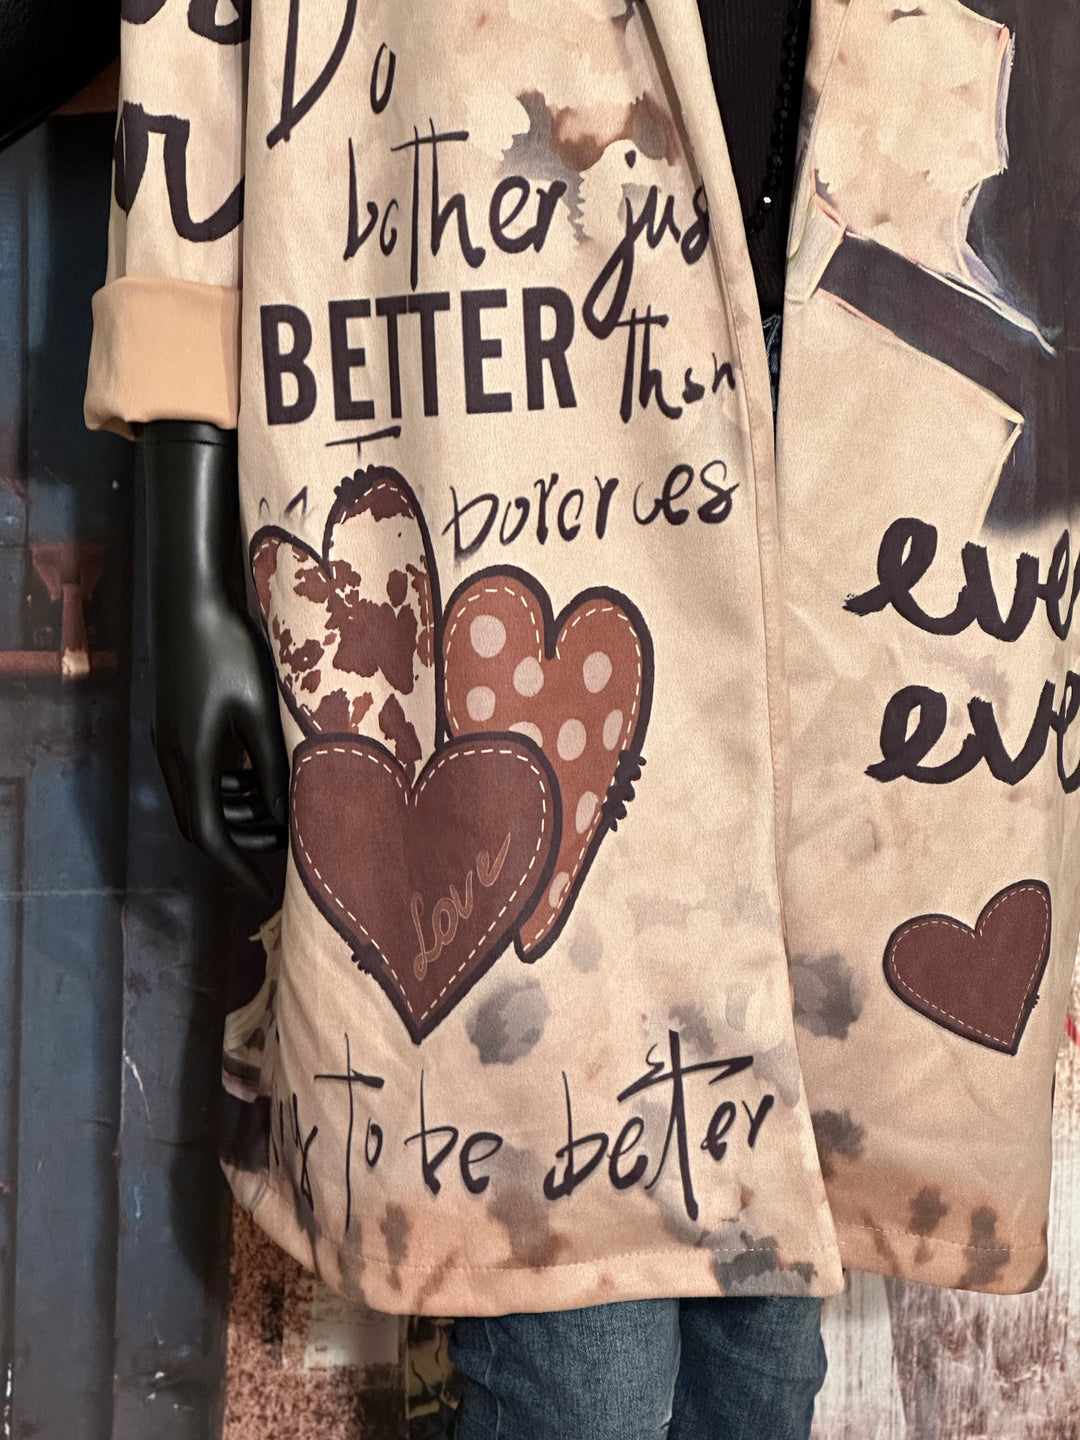 Do
bother jus
BETTER
than
eve
eve
Love
to be better